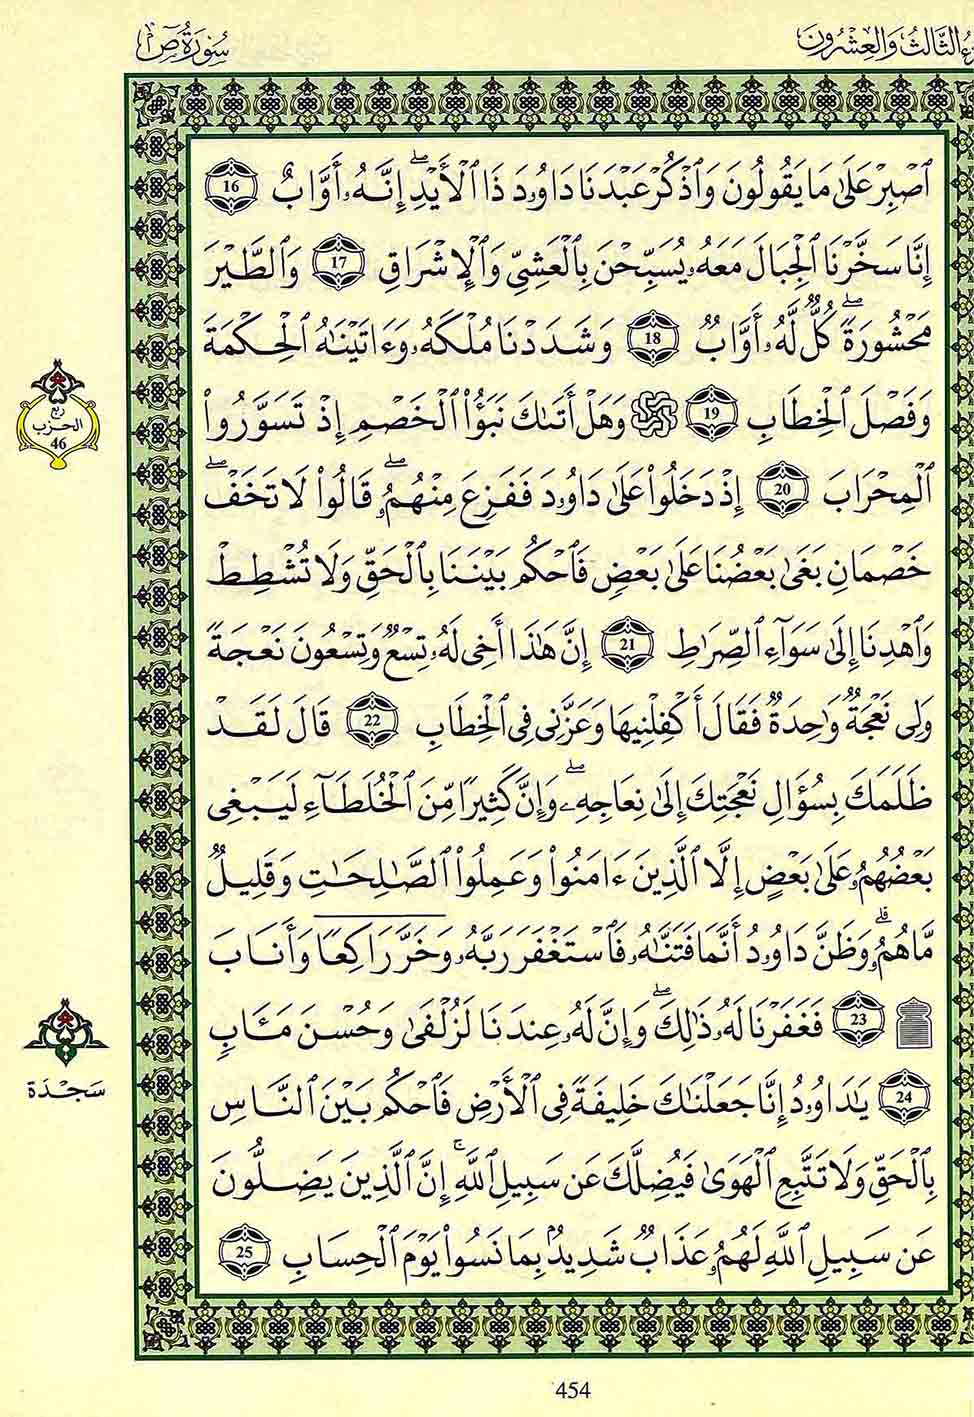 ءُ الثَّالِثُ وَالْعِشْرُونَ
سُورَةُ صٓ
ٱصۡبِرۡ عَلَىٰ مَا يَقُولُونَ وَٱذۡكُرۡ عَبۡدَنَا دَاوُۥدَ ذَا ٱلۡأَيۡدِۖ إِنَّهُۥٓ أَوَّابٌ 16
إِنَّا سَخَّرۡنَا ٱلۡجِبَالَ مَعَهُۥ يُسَبِّحۡنَ بِٱلۡعَشِيِّ وَٱلۡإِشۡرَاقِ 17 وَٱلطَّيۡرَ
مَحۡشُورَةٗۖ كُلّٞ لَّهُۥٓ أَوَّابٞ 18 وَشَدَدۡنَا مُلۡكَهُۥ وَءَاتَيۡنَٰهُ ٱلۡحِكۡمَةَ
وَفَصۡلَ ٱلۡخِطَابِ 19 وَهَلۡ أَتَىٰكَ نَبَؤُاْ ٱلۡخَصۡمِ إِذۡ تَسَوَّرُواْ
ربع
الحزب
46
ٱلۡمِحۡرَابَ 20 إِذۡ دَخَلُواْ عَلَىٰ دَاوُۥدَ فَفَزِعَ مِنۡهُمُۥۖ قَالُواْ لَا تَخَفۡۖ
خَصۡمَانِ بَغَىٰ بَعۡضُنَا عَلَىٰ بَعۡضٖ فَٱحۡكُم بَيۡنَنَا بِٱلۡحَقِّ وَلَا تُشۡطِطۡ
وَٱهۡدِنَآ إِلَىٰ سَوَآءِ ٱلصِّرَٰطِ 21 إِنَّ هَٰذَآ أَخِي لَهُۥ تِسۡعٞ وَتِسۡعُونَ نَعۡجَةٗ
وَلِي نَعۡجَةٞ وَٰحِدَةٞ فَقَالَ أَكۡفِلۡنِيهَا وَعَزَّنِي فِي ٱلۡخِطَابِ 22 قَالَ لَقَدۡ
ظَلَمَكَ بِسُؤَالِ نَعۡجَتِكَ إِلَىٰ نِعَاجِهِۦۖ وَإِنَّ كَثِيرٗا مِّنَ ٱلۡخُلَطَآءِ لَيَبۡغِي
بَعۡضُهُمُۥ عَلَىٰ بَعۡضٍ إِلَّا ٱلَّذِينَ ءَامَنُواْ وَعَمِلُواْ ٱلصَّٰلِحَٰتِ وَقَلِيلٞ
مَّا هُمُۥۗ وَظَنَّ دَاوُۥدُ أَنَّمَا فَتَنَّٰهُ فَٱسۡتَغۡفَرَ رَبَّهُۥ وَخَرَّ رَاكِعٗا وَأَنَابَ
23 فَغَفَرۡنَا لَهُۥ ذَٰلِكَۖ وَإِنَّ لَهُۥ عِندَنَا لَزُلۡفَىٰ وَحُسۡنَ مَـَٔابٖ
سَجْدَة
24 يَٰدَاوُۥدُ إِنَّا جَعَلۡنَٰكَ خَلِيفَةٗ فِي ٱلۡأَرۡضِ فَٱحۡكُم بَيۡنَ ٱلنَّاسِ
بِٱلۡحَقِّ وَلَا تَتَّبِعِ ٱلۡهَوَىٰ فَيُضِلَّكَ عَن سَبِيلِ ٱللَّهِۚ إِنَّ ٱلَّذِينَ يَضِلُّونَ
عَن سَبِيلِ ٱللَّهِ لَهُمُۥ عَذَابٞ شَدِيدُۢ بِمَا نَسُواْ يَوۡمَ ٱلۡحِسَابِ 25
454